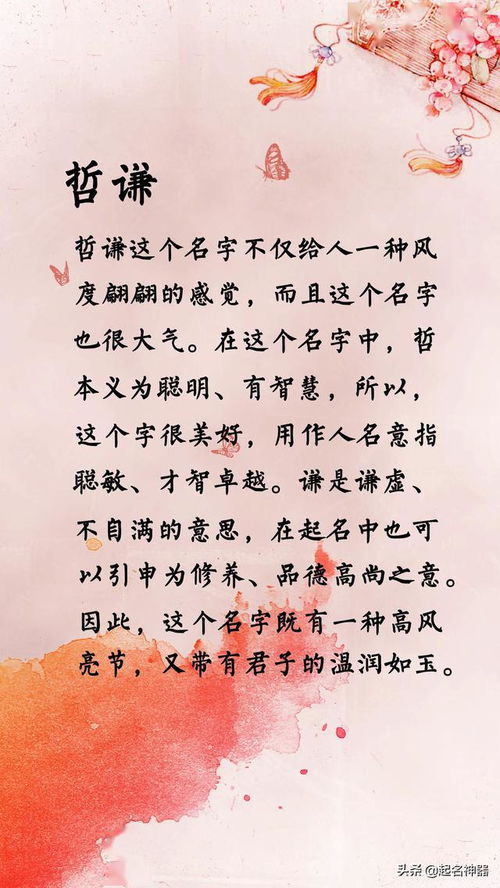 哲谦
哲谦这个名字不仅给人一种风
度翩翩的感觉，而且这个名字
也很大气。在这个名字中，哲
本义为聪明、有智慧，所以，
这个字很美好，用作人名意指
聪敏、才智卓越。谦是谦虚、
不自满的意思，在起名中也可
以引申为修养、品德高尚之意。
因此，这个名字既有一种高风
亮节，又带有君子的温润如玉。
头条 @起名神器